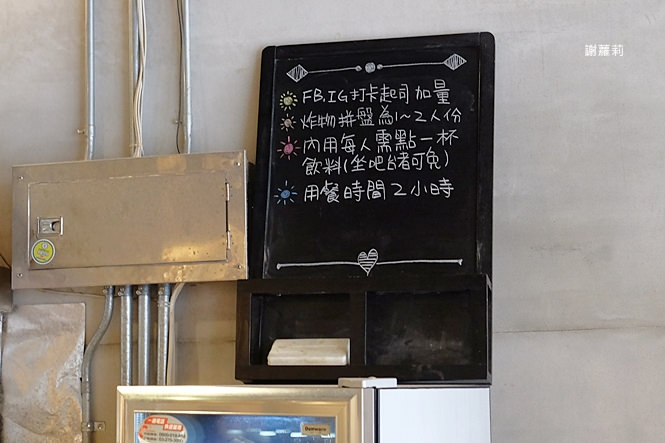 謝蘿莉
FB.IG打卡起司加量
炸物拼盤為1~2人份
內用每人需點一杯
飲料(坐吧台者可免)
用餐時間2小時